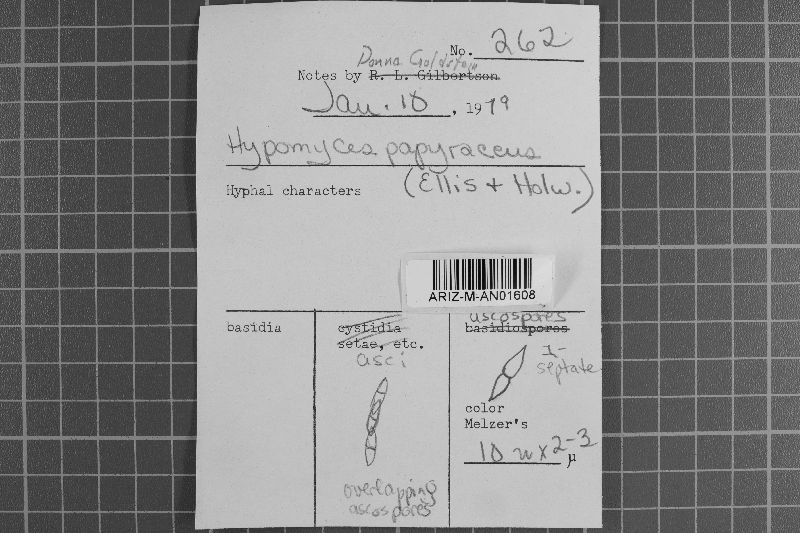 No. 262
Donna Goldstein
Notes by R. L. Gilbertson
Jan. 10, 1979
Hypomyces papyraceus
(Ellis + Holw.)
Hyphal characters
ARIZ-M-AN01608
basidia
cystidia
setae, etc.
asci
overlapping
ascospores
ascospores
basidiospores
1-
septate
color
Melzer's
10 u x 2-3 μ